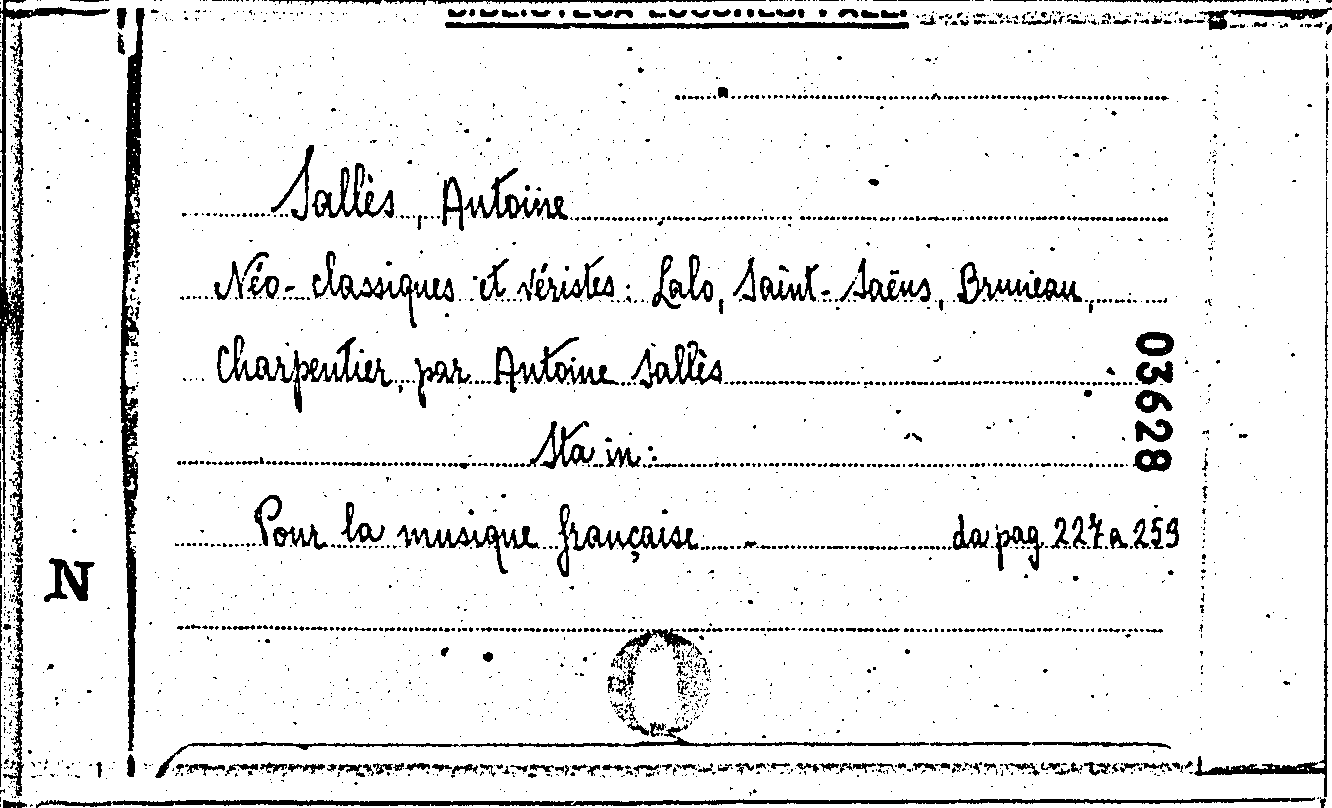 Sallès, Antoine
Néo-classiques et véristes: Lalo, Saint-Saëns, Bruneau,
Charpentier, par Antoine Sallès
03628
Sta in:
Pour la musique française - da pag 227 a 259
N